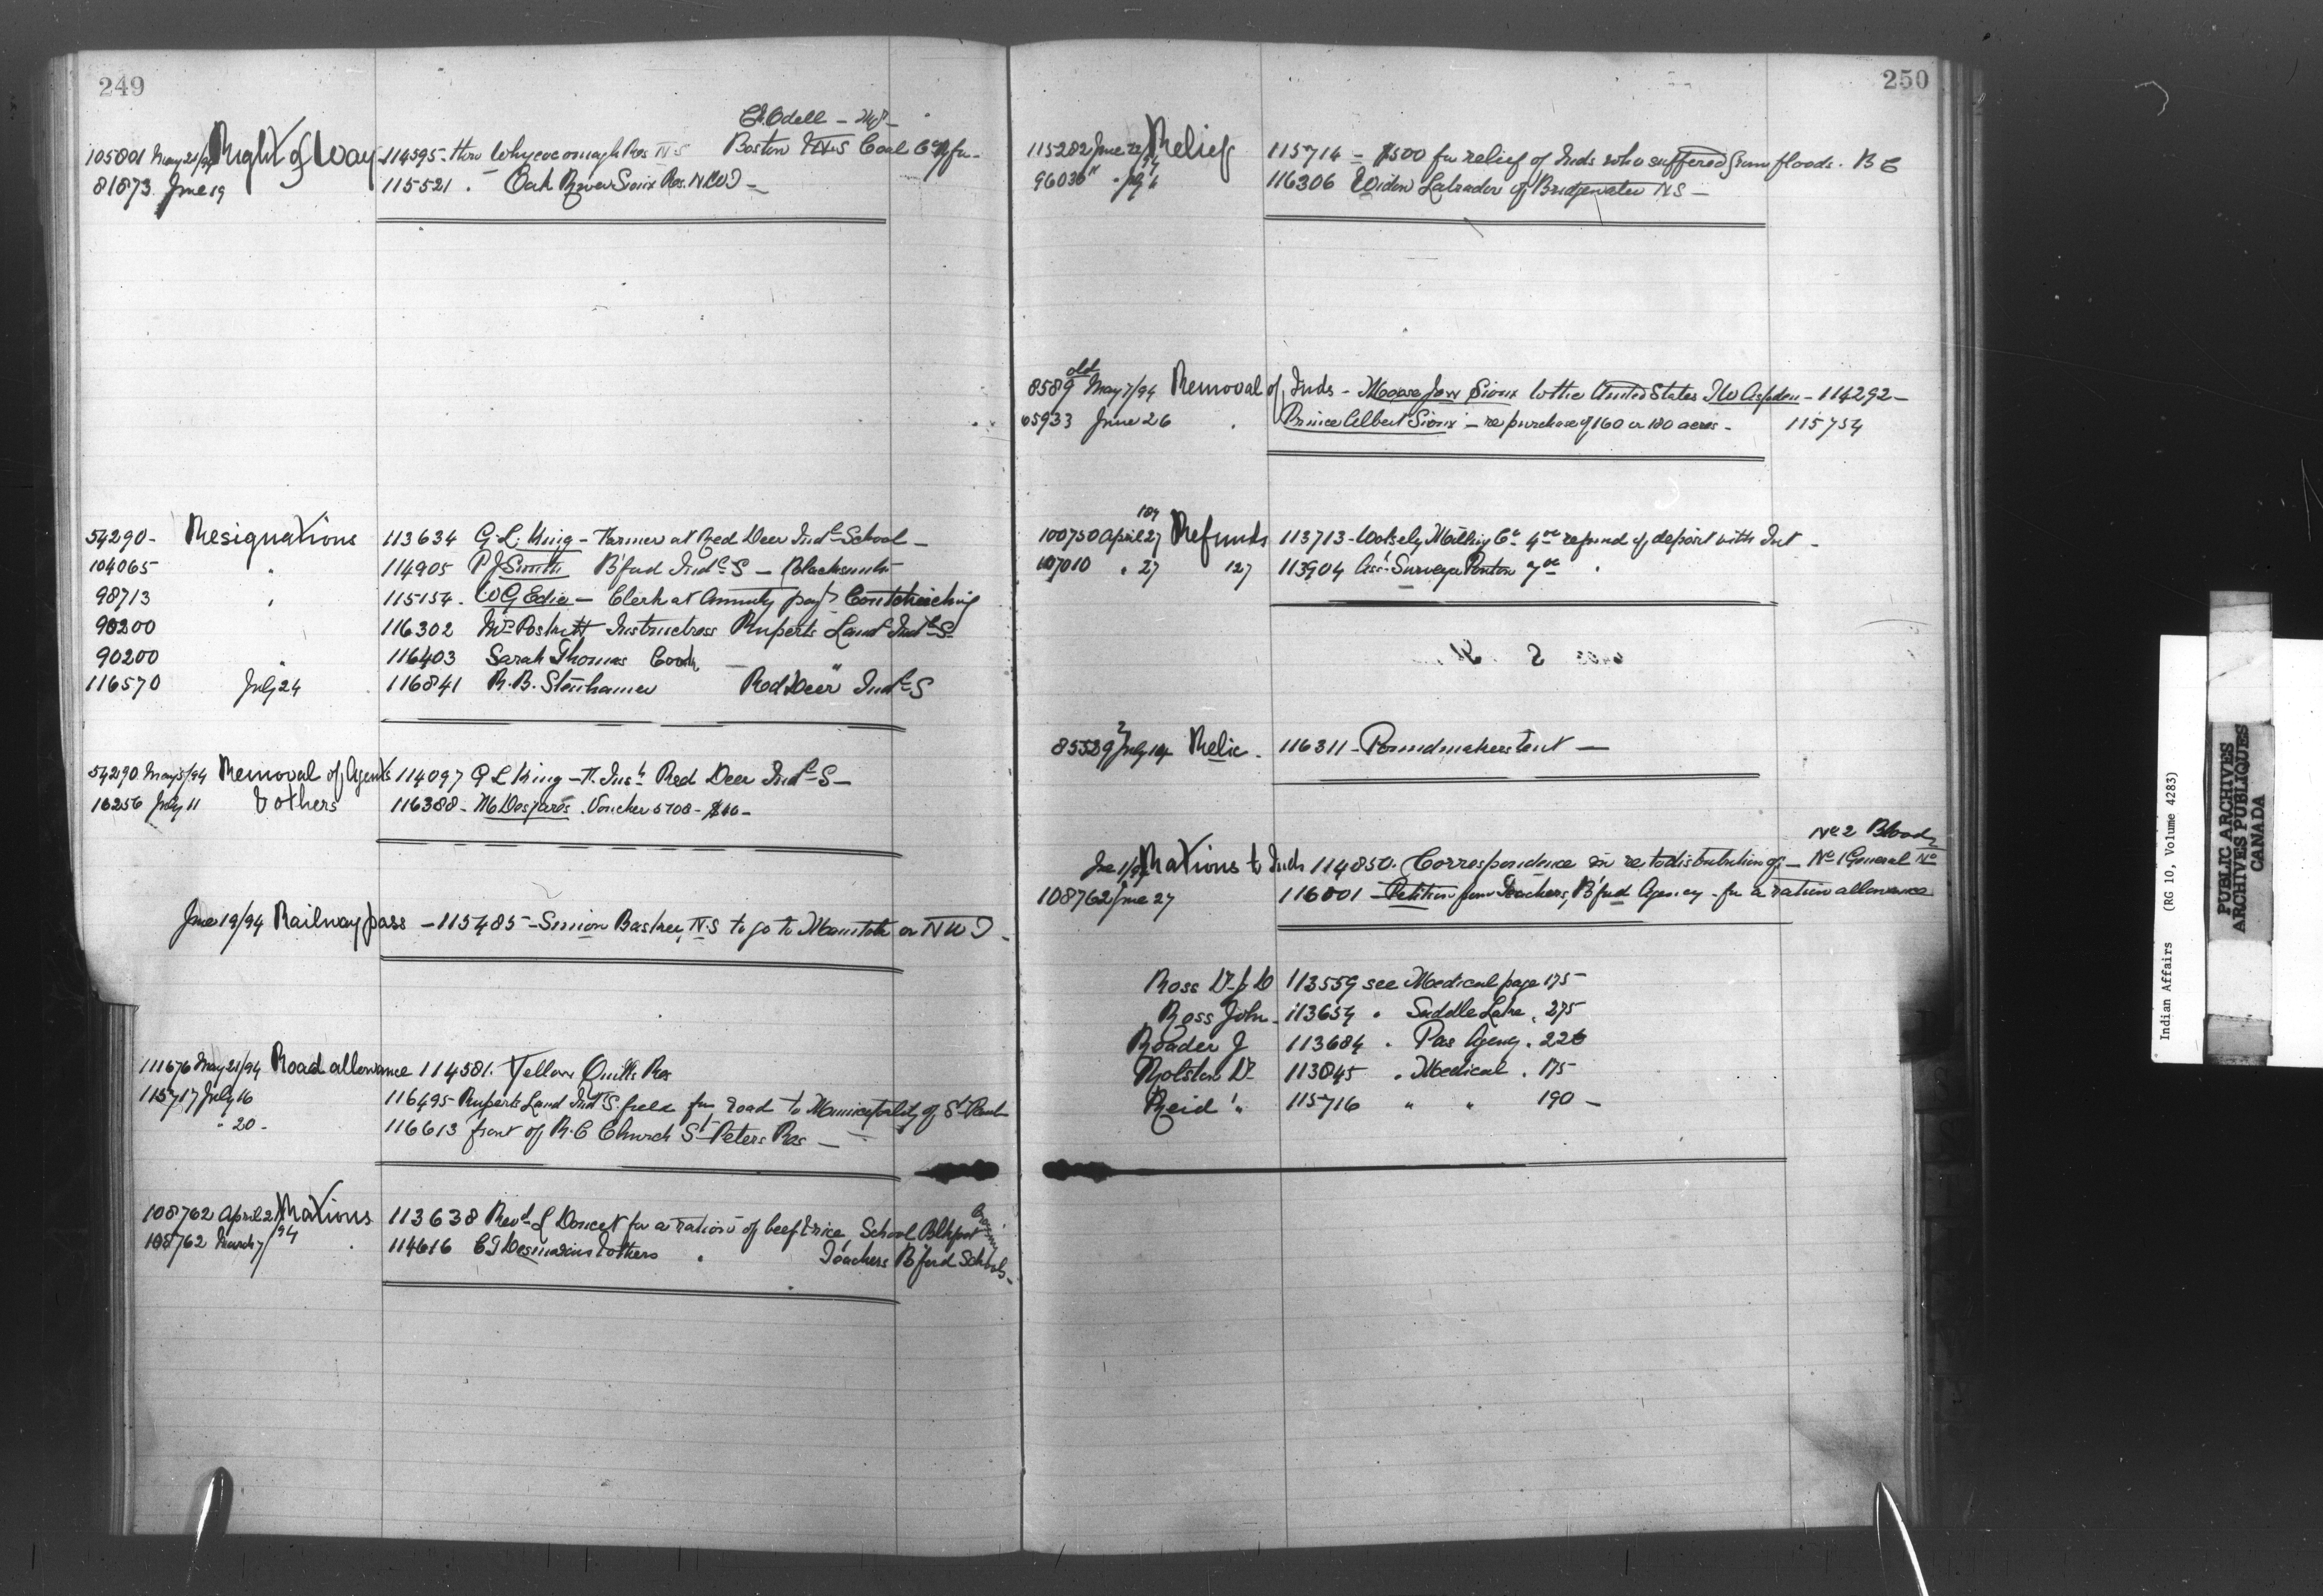 249
C. Odell - Mgr -
105801 May 21/94 Right of Way 114595 - thro Whycocomagh Res N S Boston & N S Coal Co
81873 June 19 115521 . Oak River Sioux Res. N.W.T -
54290 - Resignations 113634 G L King - Farmer at Red Deer Indl School -
104065 " 114905 P J Smith B'ford Indl S - Blacksmith
98713 " 115154 . W G Edie - Clerk at Annuity payt Coutcheching
90200 116302 Postnett Instructress Ruperts Land Indl S
90200 " 116403 Sarah Thomas Cook
116570 July 24 116841 R. B. Steinhauer Red Deer Indl S
54290 May 5/94 Removal of Agents 114097 G L King - F. Inst Red Deer Indl S -
16256 July 11 & others 116388 - M Desjares . Voucher 5708 -
June 19/94 Railway pass - 115485 - Simon Basker N.S to go to Manitoba or N W T -
111676 May 21/94 Road allowance 114581 . Yellow Quills Res
115717 July 16 116495 - Ruperts Land Indl S. field for road to Municipality of St Pauls
" 20 - 116613 front of R. C Church St Peters Res -
108762 April 21/94 Rations 113638 Revd L Doucet for a ration of beef & rice, School Blkfoot Crossing
108762 March 7 114616 C T Desmarais & others " Teachers B'ford Schools -
250
115282 June 22/94 Relief 115714 - $500 for relief of Inds who suffered from floods . B C
96036 " July 6 116306 Widow Labrador of Bridgewater N S -
old
8589 May 7/94 Removal of Inds - Moose Jaw Sioux to the United States T W Aspden - 114292 -
65933 June 26 " Prince Albert Sioux - re purchase of 160 or 180 acres - 115754
100750 April 27 Refunds 113713 - Wolsely Milling Co refund of deposit with Int -
107010 " 27 127 113904 Asst Surveyor Ponton
85529 July 14 Relic . 116311 - Poundmakers tent -
No 2 Bloods
June 1/94 Rations to Inds 114850 . Correspondence in re to distribution of - No 1 General No
108762 June 27 116001 - Petition from Teachers, B'ford Agency - for a ration allowance
Ross Dr 113559 see Medical page 175
Ross John - 113654 " Saddle Lake , 275
Reader J 113684 " Pas Agency . 226
Rolston Dr 113845 " Medical . 175
Reid " 115716 " " 190 -
Indian Affairs (RG 10, Volume 4283)
PUBLIC ARCHIVES
ARCHIVES PUBLIQUES
CANADA